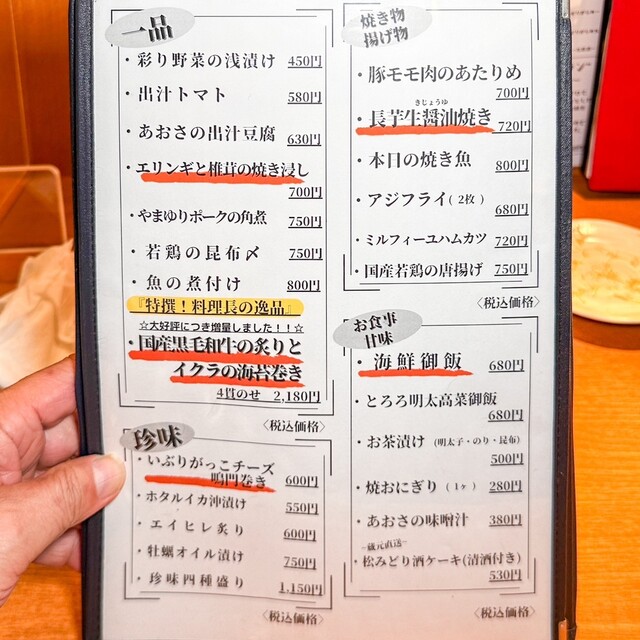 一品
・彩り野菜の浅漬け 450円
・出汁トマト 580円
・あおさの出汁豆腐 630円
・エリンギと椎茸の焼き浸し
700円
・やまゆりポークの角煮 750円
・若鶏の昆布〆 750円
・魚の煮付け 800円
『特撰！料理長の逸品』
☆大好評につき増量しました！！☆
・国産黒毛和牛の炙りと
イクラの海苔巻き
4貫のせ 2,180円
〈税込価格〉
珍味
・いぶりがっこチーズ
鳴門巻き 600円
・ホタルイカ沖漬け 550円
・エイヒレ炙り 600円
・牡蠣オイル漬け 750円
・珍味四種盛り 1,150円
〈税込価格〉
焼き物
揚げ物
・豚モモ肉のあたりめ
700円
きじょうゆ
・長芋生醤油焼き 720円
・本日の焼き魚 800円
・アジフライ(2枚)
680円
・ミルフィーユハムカツ 720円
・国産若鶏の唐揚げ 750円
〈税込価格〉
お食事
甘味
・海鮮御飯 680円
・とろろ明太高菜御飯
680円
・お茶漬け (明太子・のり・昆布)
500円
・焼おにぎり(1ヶ) 280円
・あおさの味噌汁 380円
–蔵元直送–
・松みどり酒ケーキ(清酒付き)
530円
〈税込価格〉